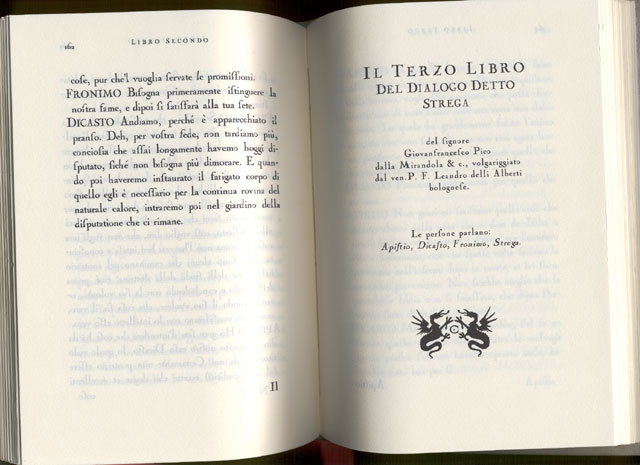 162
LIBRO SECONDO
coſe, pur che'l vuoglia ſervate le promiſſioni.
FRONIMO Biſogna primeramente iſtinguere la
noſtra fame, e dipoi ſi ſatiſfarà alla tua ſete.
DICASTO Andiamo, perché è apparecchiato il
pranſo. Deh, per voſtra fede, non tardiamo più,
concioſia che aſſai longamente havemo hoggi di-
ſputato, ſiché non biſogna più dimorare. E quan-
do poi haveremo inſtaurato il fatigato corpo di
quello egli è neceſſario per la continua rovina del
naturale calore, intraremo poi nel giardino della
diſputatione che ci rimane.
Il
IL TERZO LIBRO
DEL DIALOGO DETTO
STREGA
del ſignore
Giovanfranceſco Pico
dalla Mirandola & c., volgariggiato
dal ven. P. F. Leandro delli Alberti
bologneſe.
Le perſone parlano:
Apiſtio, Dicaſto, Fronimo, Strega.